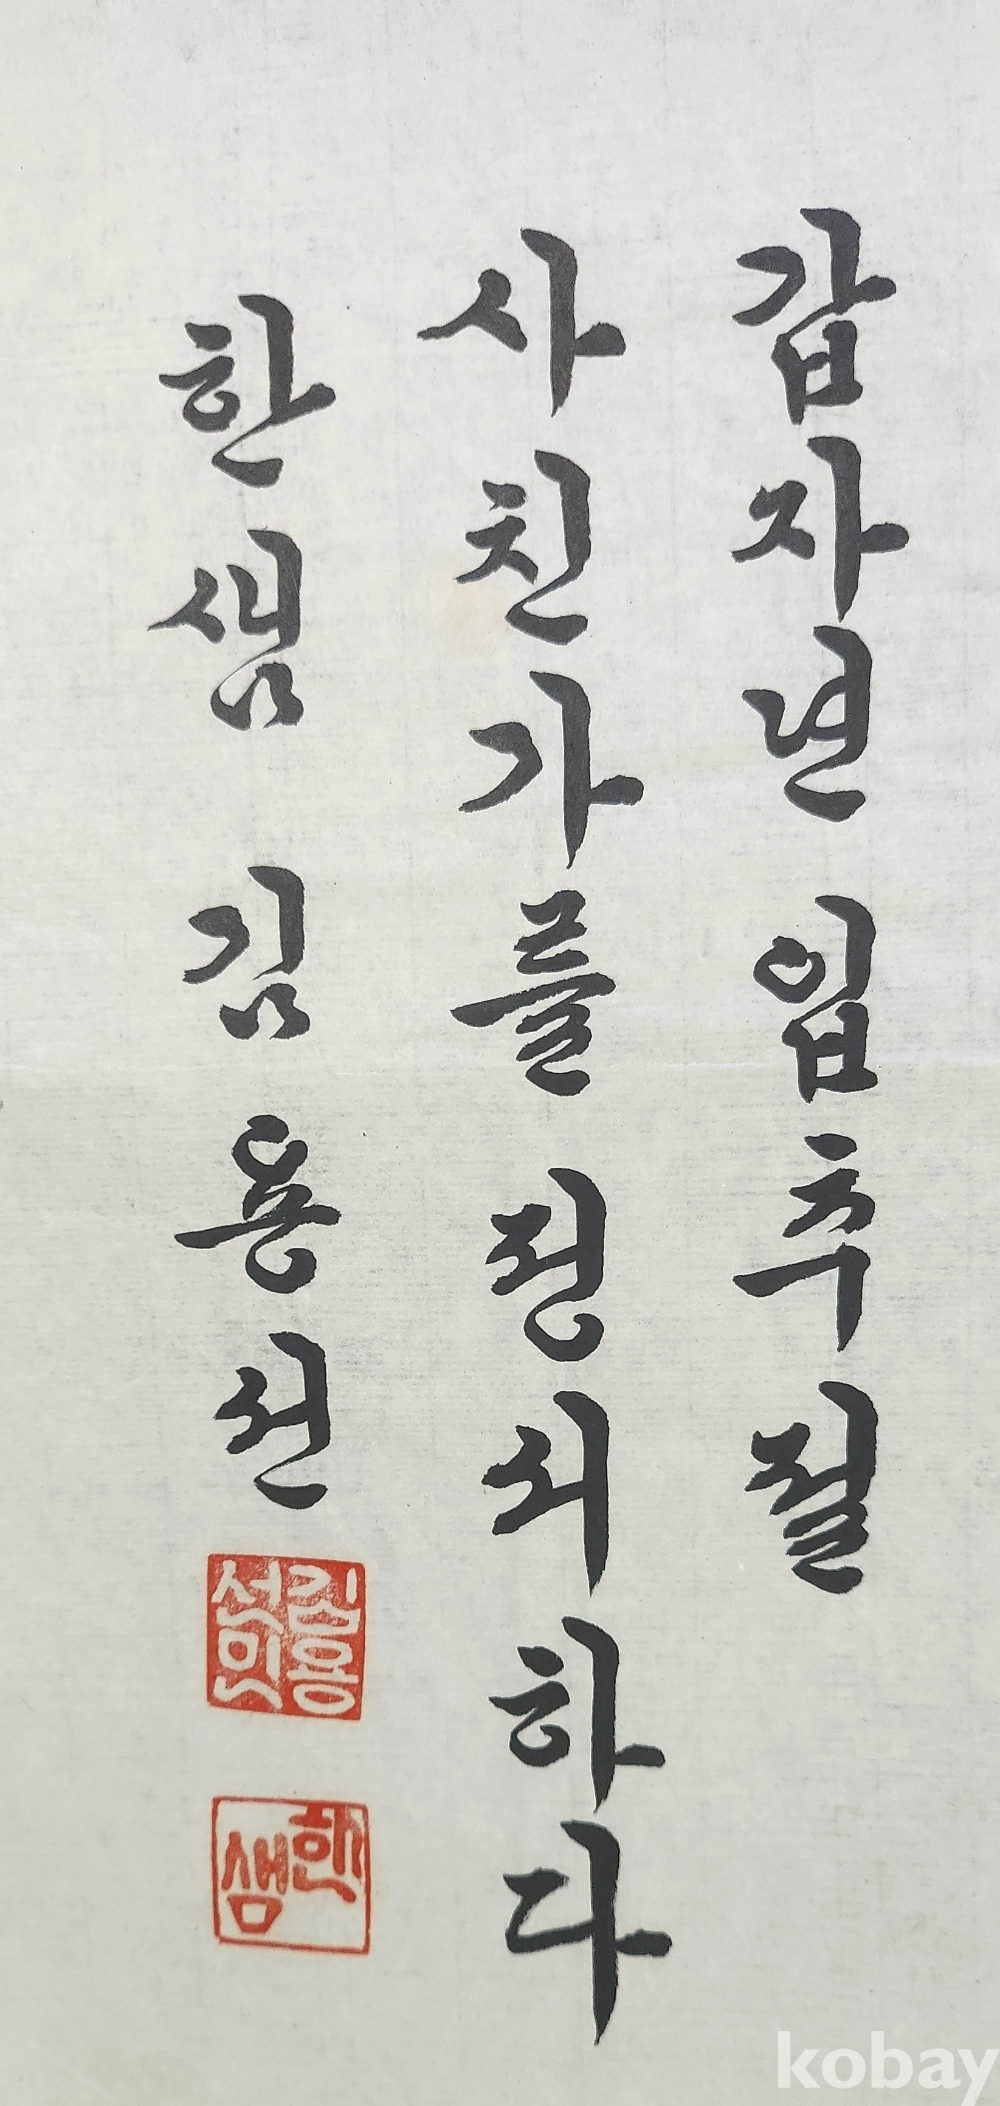 갑자년 입추절
사친가를 정서하다
한샘 김용선
김용
석인
한
샘
kobay